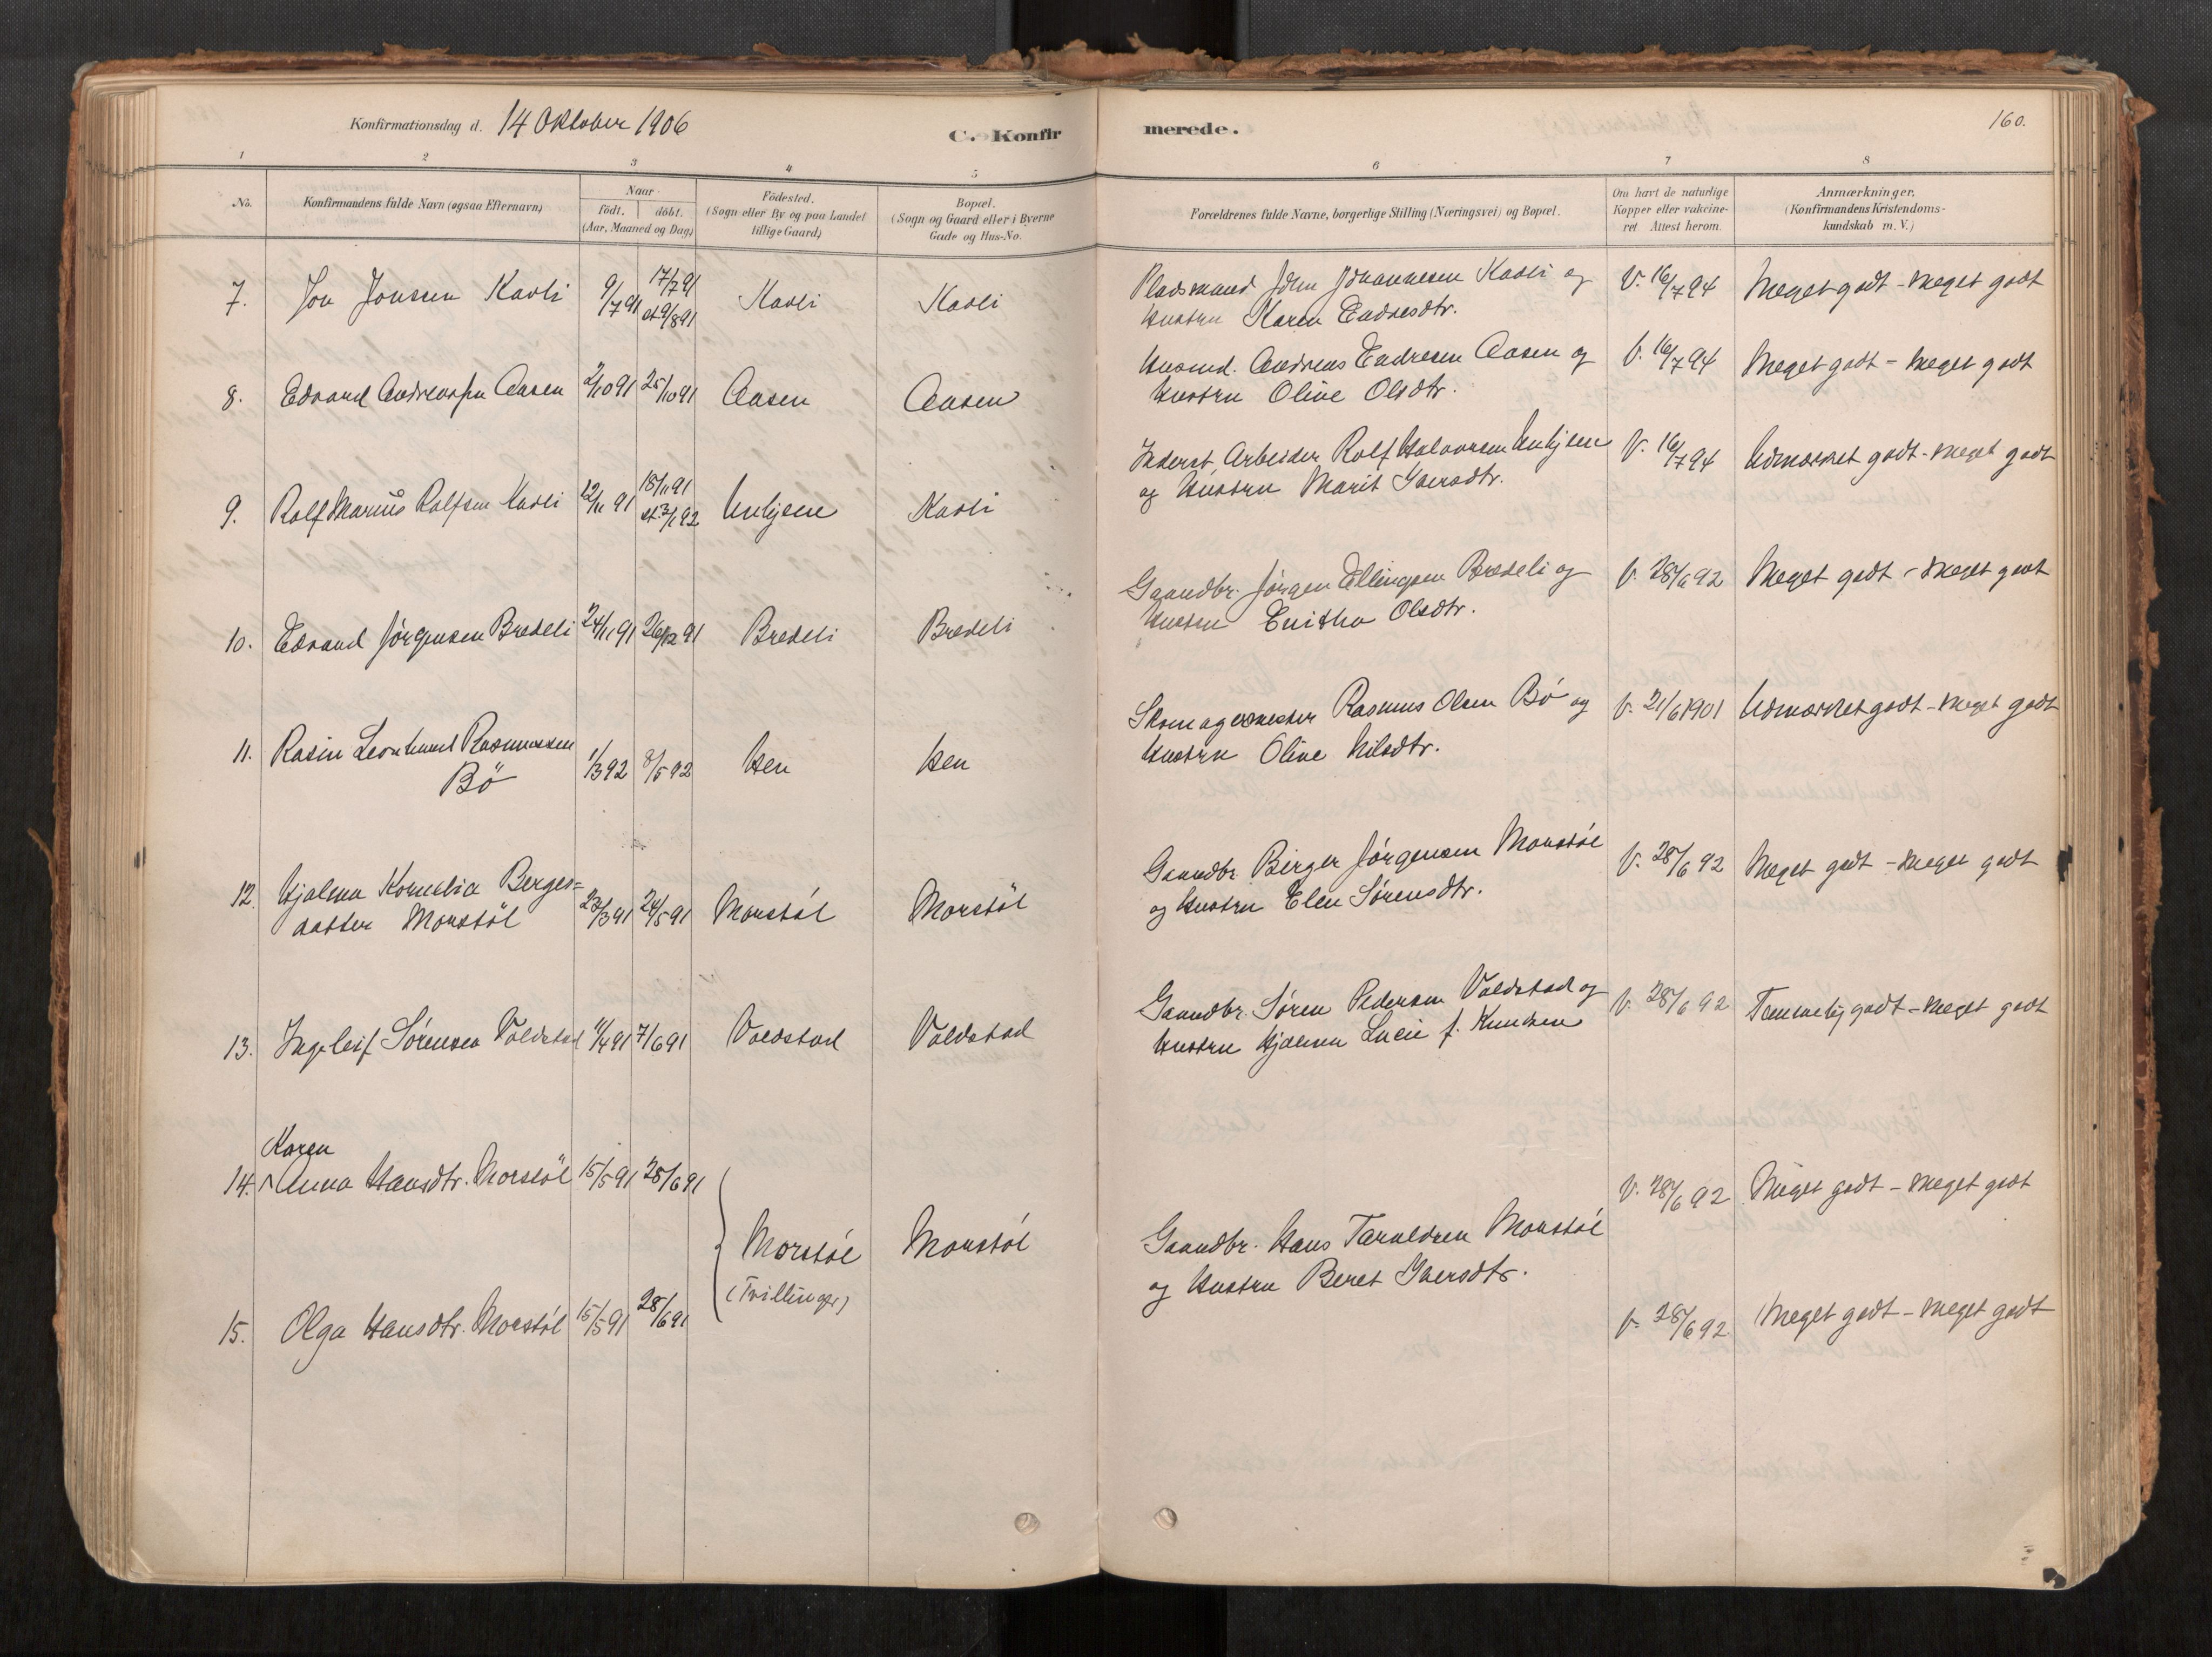 Konfirmationsdag d. 14 Oktober 1906
C. Konfirmerede.
160.
1 2 3 4 5 6 7 8
No.
Konfirmandens fulde Navn (ogsaa Efternavn)
Naar
födt. döbt.
(Aar, Maaned og Dag)
Födested.
(Sogn eller By og paa Landet
tillige Gaard)
Bopæl.
(Sogn og Gaard eller i Byerne
Gade og Hus-No.
Forældrenes fulde Navne, borgerlige Stilling (Næringsvei) og Bopæl.
Om havt de naturlige
Kopper eller vakcine-
ret. Attest herom.
Anmærkninger.
(Konfirmandens Kristendoms-
kundskab m. V.)
7. Jon Jonsen Kavli 9/7 91 17/7 91 st 9/8 91 Kavli Kavli
Pladsmand John Johannesen Kavli og V. 16/7 94 Meget godt - Meget godt
Hustru Karen Endresdtr.
8. Edvard Andreassen Aasen 2/10 91 25/10 91 Aasen Aasen
Husmd. Andreas Endresen Aasen og V. 16/7 94 Meget godt - Meget godt
Hustru Oline Olsdtr.
9. Rolf Marius Rolfsen Kavli 12/11 91 18/11 91 st. 3/1 92 Unhjem Kavli
Inderst, Arbeider Rolf Halvorsen Unhjem V. 16/7 94 Udmærket godt - Meget godt
og Hustru Marit Iversdtr.
10. Edvard Jørgensen Bredeli 24/11 91 26/12 91 Bredeli Bredeli
Gaardbr. Jørgen Ellingsen Bredeli og V. 28/6 92 Meget godt - Meget godt
Hustru Enitha Olsdtr.
11. Rasin Leonhard Rasmussen
Bö 1/3 92 8/5 92 Hen Hen
Skomagermester Rasmus Olsen Bö og V. 21/6 1901 Udmærket godt - Meget godt
Hustru Oline Nilsdtr.
12. Hjalma Kornelia Berges=
datter Morstöl 23/3 91 24/5 91 Morstöl Morstöl
Gaardbr. Birger Jørgensen Morstöl V. 28/6 92 Meget godt - Meget godt
og Hustru Elen Sørensdtr.
13. Ingeleif Sørensen Voldstad 11/4 91 7/6 91 Voldstad Voldstad
Gaardbr. Søren Pedersen Voldstad og V. 28/6 92 Temmelig godt - Meget godt
Hustru Hjalma Lucie f. Knudsen
Karen
14. Anna Hansdtr. Morstöl 15/5 91 28/6 91
V. 28/6 92 Meget godt - Meget godt
Morstöl Morstöl
(Tvillinger)
Gaardbr. Hans Taraldsen Morstöl
og Hustru Beret Iversdtr.
15. Olga Hansdtr. Morstöl 15/5 91 28/6 91
V. 28/6 92. Meget godt - Meget godt